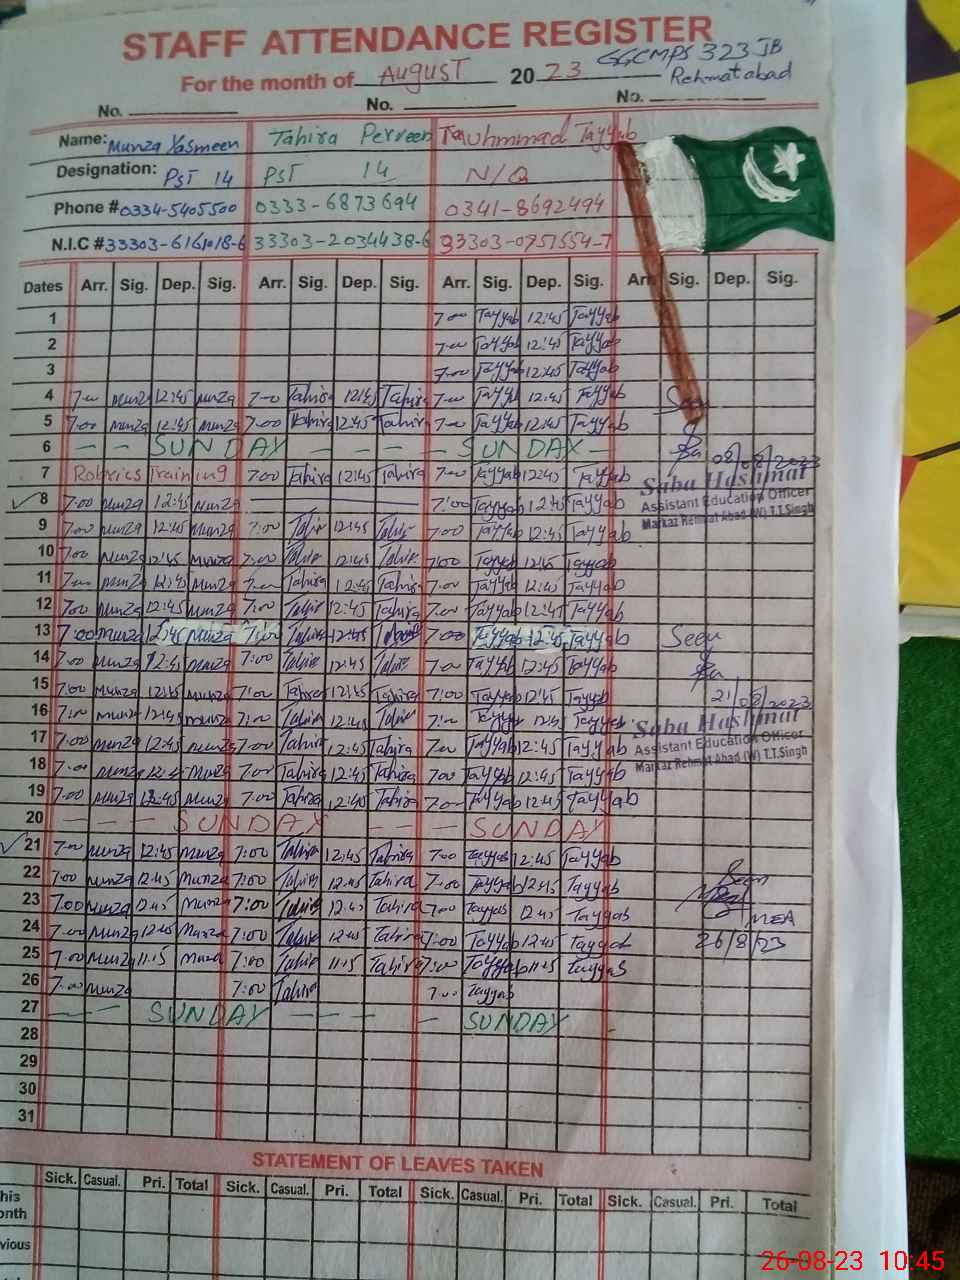 STAFF ATTENDANCE REGISTER
For the month of August 2023 GGCMPS 323 JB
Rehmatabad
No. No. No.
Name: Munza Yasmeen Tahira Perveen Tauhmmad Tayyab
Designation: PST 14 PST 14 N/Q
Phone # 0334-5405500 0333-6873694 0341-8692494
N.I.C # 33303-6161018-6 33303-2034438-6 33303-0751554-7
Dates Arr. Sig. Dep. Sig. Arr. Sig. Dep. Sig. Arr. Sig. Dep. Sig. Arr. Sig. Dep. Sig.
1 7:00 Tayyab 12:45 Tayyab
2 7:00 Tayyab 12:45 Tayyab
3 7:00 Tayyab 12:45 Tayyab
4 7:00 Munza 12:45 Munza 7:00 Tahira 12:45 Tahira 7:00 Tayyab 12:45 Tayyab Seen
5 7:00 Munza 12:45 Munza 7:00 Tahira 12:45 Tahira 7:00 Tayyab 12:45 Tayyab
6 - - SUNDAY - - - SUNDAY -
7 Robotics Training 7:00 Tahira 12:45 Tahira 7:00 Tayyab 12:45 Tayyab
08/08/2023
Saba Hashmat
Assistant Education Officer
Markaz Rehmat Abad (W) T.T.Singh
8 7:00 Munza 12:45 Munza 7:00 Tayyab 12:45 Tayyab
9 7:00 Munza 12:45 Munza 7:00 Tahira 12:45 Tahira 7:00 Tayyab 12:45 Tayyab
10 7:00 Munza 12:45 Munza 7:00 Tahira 12:45 Tahira 7:00 Tayyab 12:45 Tayyab
11 7:00 Munza 12:45 Munza 7:00 Tahira 12:45 Tahira 7:00 Tayyab 12:45 Tayyab
12 7:00 Munza 12:45 Munza 7:00 Tahira 12:45 Tahira 7:00 Tayyab 12:45 Tayyab
13 7:00 Munza 12:45 Munza 7:00 Tahira 12:45 7:00 Tayyab 12:45 Tayyab Seen
14 7:00 Munza 12:45 Munza 7:00 Tahira 12:45 Tahira 7:00 Tayyab 12:45 Tayyab
15 7:00 Munza 12:45 Munza 7:00 Tahira 12:45 Tahira 7:00 Tayyab 12:45 Tayyab
21/08/2023
Saba Hashmat
Assistant Education Officer
Markaz Rehmat Abad (W) T.T.Singh
16 7:00 Munza 12:45 Munza 7:00 Tahira 12:45 Tahira 7:00 Tayyab 12:45 Tayyab
17 7:00 Munza 12:45 Munza 7:00 Tahira 12:45 Tahira 7:00 Tayyab 12:45 Tayyab
18 7:00 Munza 12:45 Munza 7:00 Tahira 12:45 Tahira 7:00 Tayyab 12:45 Tayyab
19 7:00 Munza 12:45 Munza 7:00 Tahira 12:45 Tahira 7:00 Tayyab 12:45 Tayyab
20 - - - SUNDAY - - - SUNDAY
21 7:00 Munza 12:45 Munza 7:00 Tahira 12:45 Tahira 7:00 Tayyab 12:45 Tayyab
22 7:00 Munza 12:45 Munza 7:00 Tahira 12:45 Tahira 7:00 Tayyab 12:45 Tayyab Seen
23 7:00 Munza 12:45 Munza 7:00 Tahira 12:45 Tahira 7:00 Tayyab 12:45 Tayyab MEA
24 7:00 Munza 12:45 Munza 7:00 Tahira 12:45 Tahira 7:00 Tayyab 12:45 Tayyab 26/8/23
25 7:00 Munza 11:15 Munza 7:00 Tahira 11:15 Tahira 7:00 Tayyab 11:15 Tayyab
26 7:00 Munza 7:00 Tahira 7:00 Tayyab
27 - - - SUNDAY - - - - SUNDAY
28
29
30
31
STATEMENT OF LEAVES TAKEN
Sick. Casual. Pri. Total Sick. Casual. Pri. Total Sick. Casual. Pri. Total Sick. Casual. Pri. Total
his
onth
vious
26-08-23 10:45